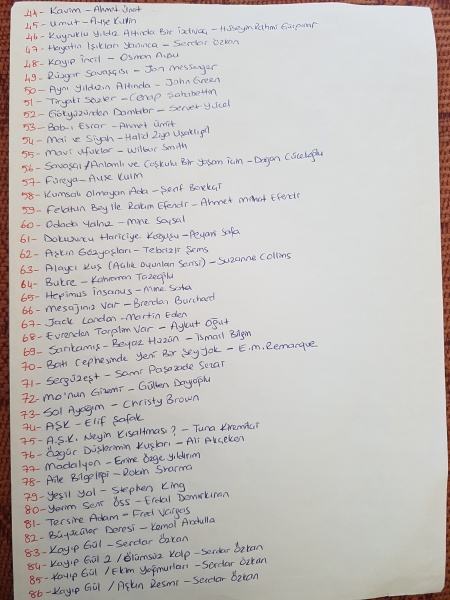 44- Kavim - Ahmet Ümit
45- Umut - Ayşe Kulin
46- Kuyruklu Yıldız Altında Bir İzdivaç - Hüseyin Rahmi Gürpınar
47- Hayatın Işıkları Yanınca - Serdar Özkan
48- Kayıp İncil - Osman Aysu
49- Rüzgar Savaşçısı - Jon Messenger
50- Aynı Yıldızın Altında - John Green
51- Tiryaki Sözler - Cenap Şahabettin
52- Gökyüzünden Damlalar - Servet Yücel
53- Bab-ı Esrar - Ahmet Ümit
54- Mai ve Siyah - Halid Ziya Uşaklıgil
55- Mavi Ufuklar - Wilbur Smith
56- Savaşçı / Anlamlı ve Coşkulu Bir Yaşam için - Doğan Cüceloğlu
57- Füreya - Ayşe Kulin
58- Kumsalı Olmayan Ada - Şerif
59- Felatun Bey ile Rakım Efendi - Ahmet Mithat Efendi
60- Odada Yalnız - Mine Soysal
61- Dokuzuncu Hariciye Koğuşu - Peyami Safa
62- Aşkın Gözyaşları - Tebrizli Şems
63- Alaycı Kuş (Açlık Oyunları Serisi) - Suzanne Collins
64- Bukre - Kahraman Tazeoğlu
65- Hepimus İnsanus - Mine Sota
66- Mesajınız Var - Brendon Burchard
67- Jack London - Martin Eden
68- Evrenden Torpilim Var - Aykut Oğut
69- Sarıkamış - Beyaz Hüzün - İsmail Bilgin
70- Batı Cephesinde Yeni Bir Şey Yok - E.m. Remarque
71- Sergüzeşt - Sami Paşazade Sezai
72- Mo'nun Gizemi - Gülten Dayıoğlu
73- Sol Ayağım - Christy Brown
74- AŞK - Elif Şafak
75- A.Ş.K. Neyin Kısaltması? - Tuna Kiremitçi
76- Özgür Düşlerimin Kuşları - Ali Akçeken
77- Madalyon - Emine Özge Yıldırım
78- Aile Bilgeliği - Robin Sharma
79- Yeşil Yol - Stephen King
80- Yarim Seni ÖSS - Erdal Demirkıran
81- Tersine Adam - Fred Vargas
82- Büyücüler Deresi - Kemal Abdulla
83- Kayıp Gül - Serdar Özkan
84- Kayıp Gül 2 / Ölümsüz Kalp - Serdar Özkan
85- Kayıp Gül / Ekim Yağmurları - Serdar Özkan
86- Kayıp Gül / Aşkın Resmi - Serdar Özkan